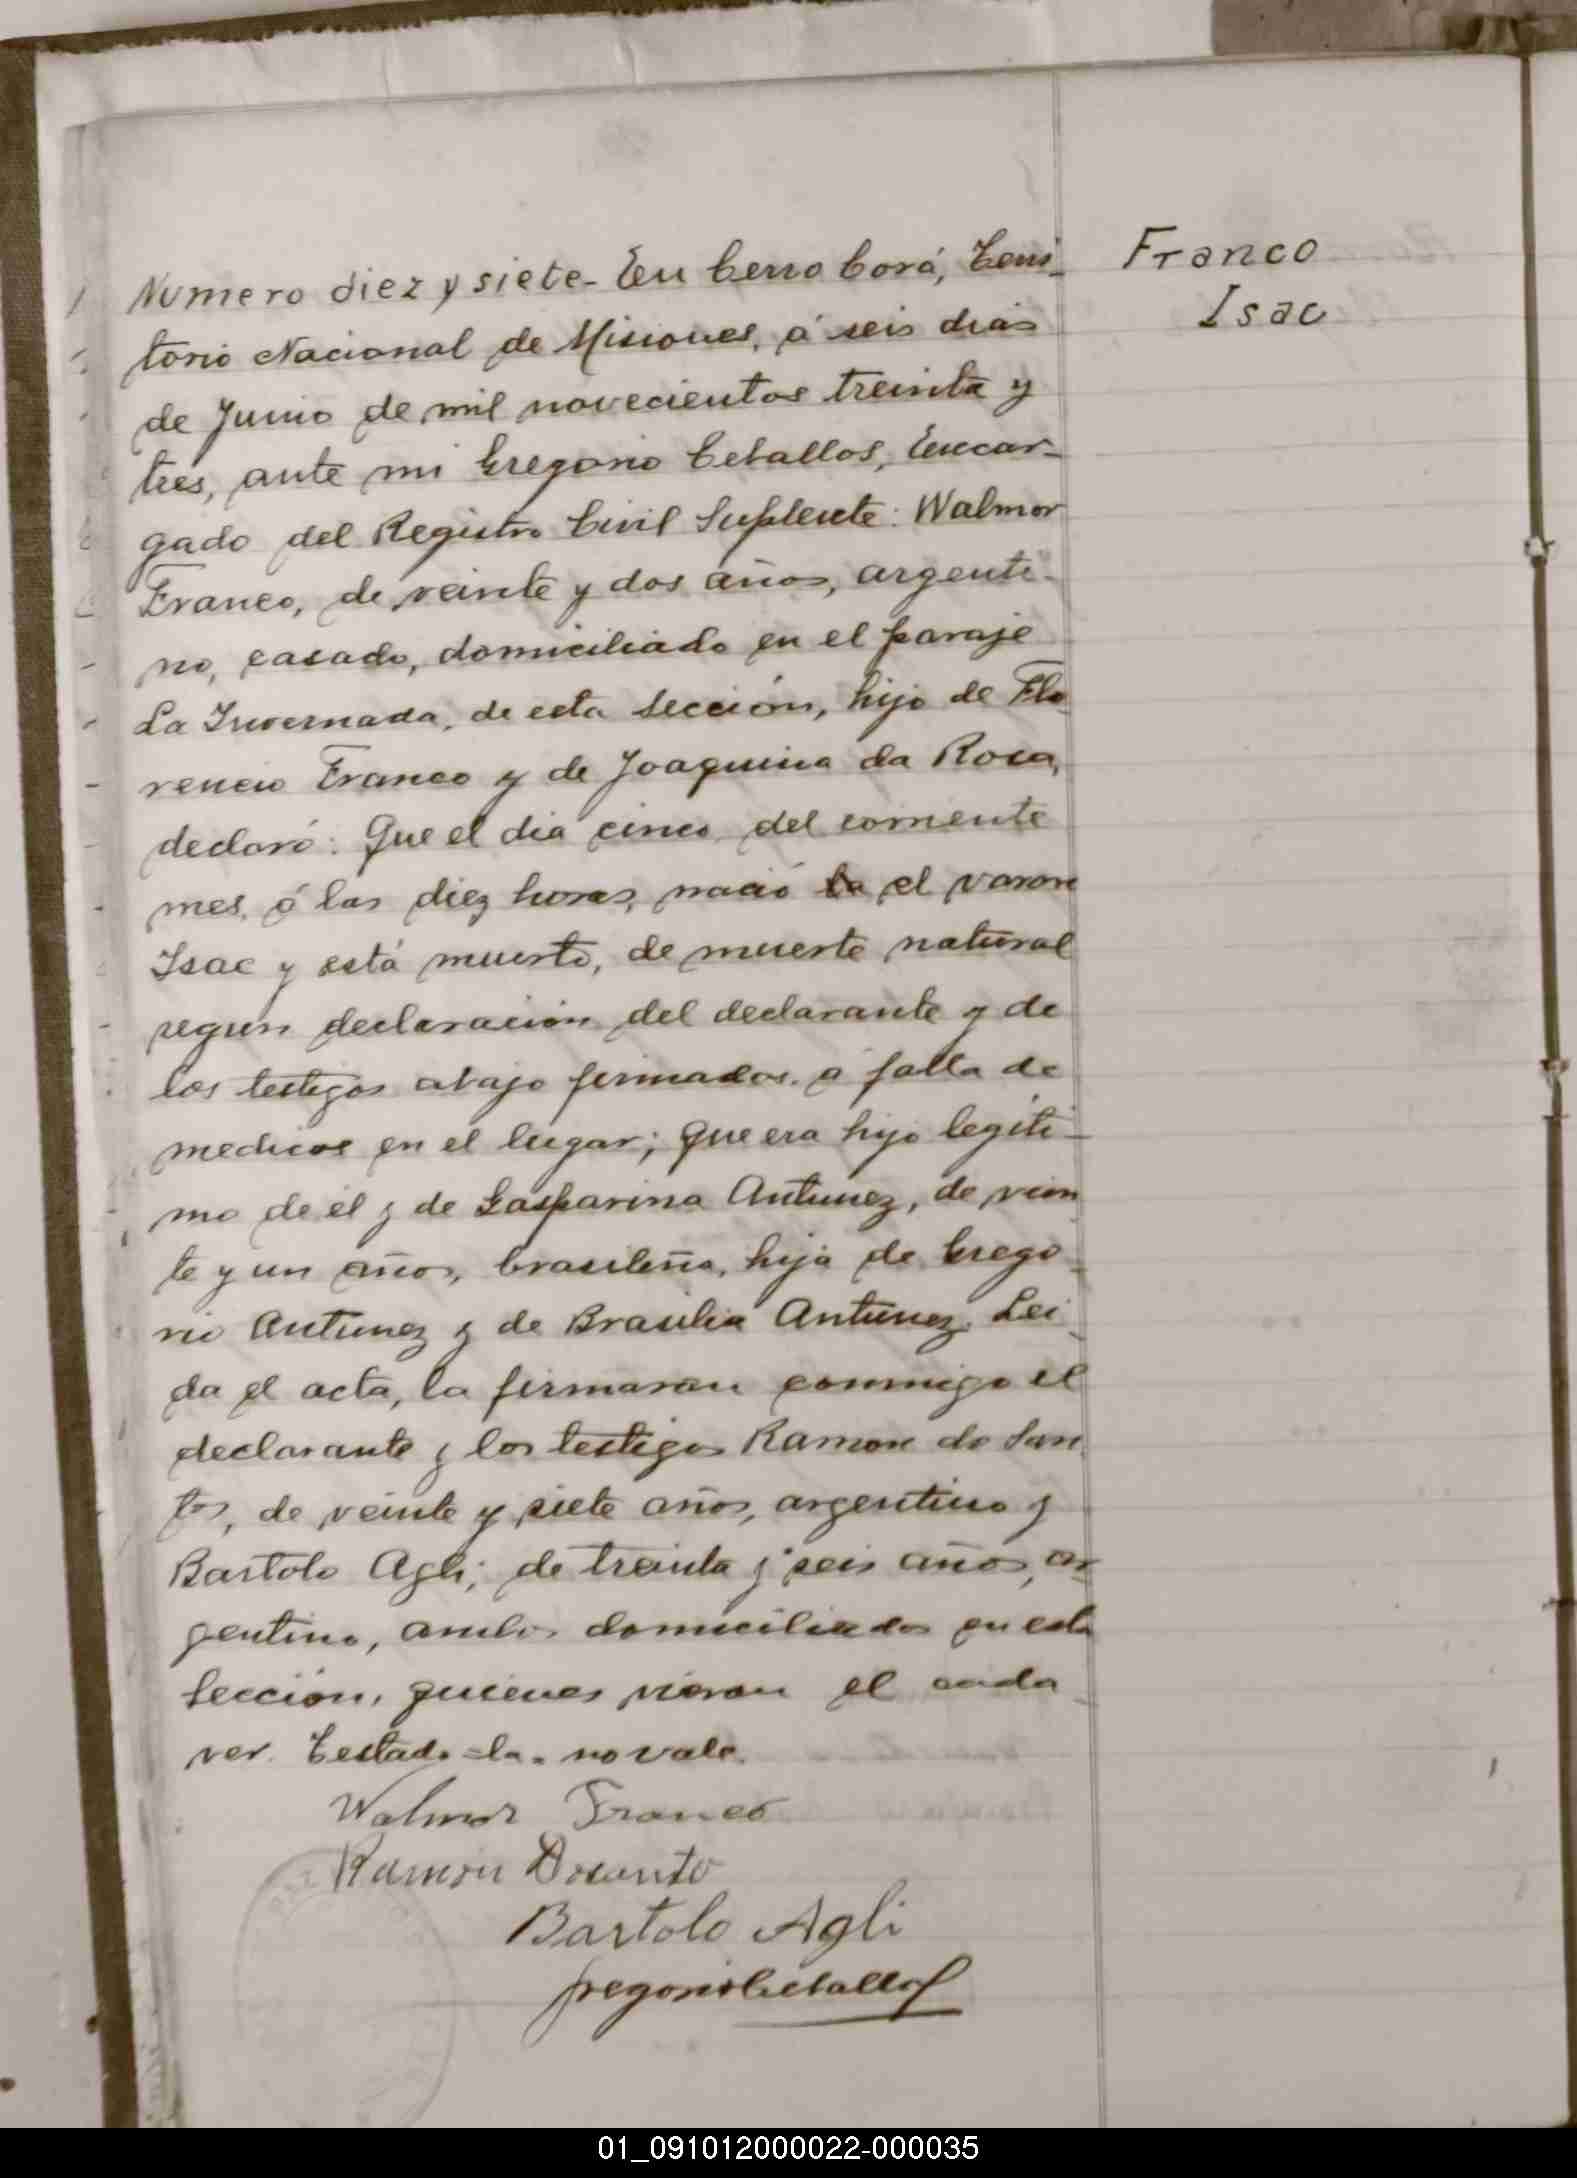 Numero diez y siete - En Cerro Corá, Terri-
torio Nacional de Misiones, á seis dias
de Junio de mil novecientos treinta y
tres, ante mi Gregorio Ceballos, Encar-
gado del Registro Civil Suplente: Walmor
Franco, de veinte y dos años, argenti-
no, casado, domiciliado en el paraje
La Invernada, de esta Sección, hijo de Flo-
rencio Franco y de Joaquina da Rosa,
declaró: Que el dia cinco del corriente
mes, á las diez horas, nació la el varon
Isac y está muerto, de muerte natural
segun declaración del declarante y de
los testigos abajo firmados, á falta de
medicos en el lugar; que era hijo legiti-
mo de él y de Gasparina Antunez, de vein
te y un años, brasileña, hija de Grego-
rio Antunez y de Brasilia Antunez. Lei-
da el acta, la firmaron conmigo el
declarante y los testigos Ramon do San
tos, de veinte y siete años, argentino y
Bartolo Agli, de treinta y seis años, ar-
gentino, ambos domiciliados en esta
Sección, quienes vieron el cada-
ver. Testado = la = no vale.
Walmor Franco
Ramon Dosanto
Bartolo Agli
Gregorio Ceballos
Franco
Isac
01_091012000022-000035